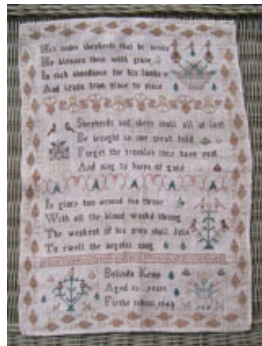 His under shepherds that he sends
He blesses them with grace
In rich abundance for his lambs
And leads from place to place
Shepherds and sheep shall all at last
Be brought in one great fold
Forget the troubles they have past
And sing to harps of gold
In glory too around his throne
With all the blood washd throng
The weakest of his own shall join
To swell the angelic song
Belinda
Aged years
school